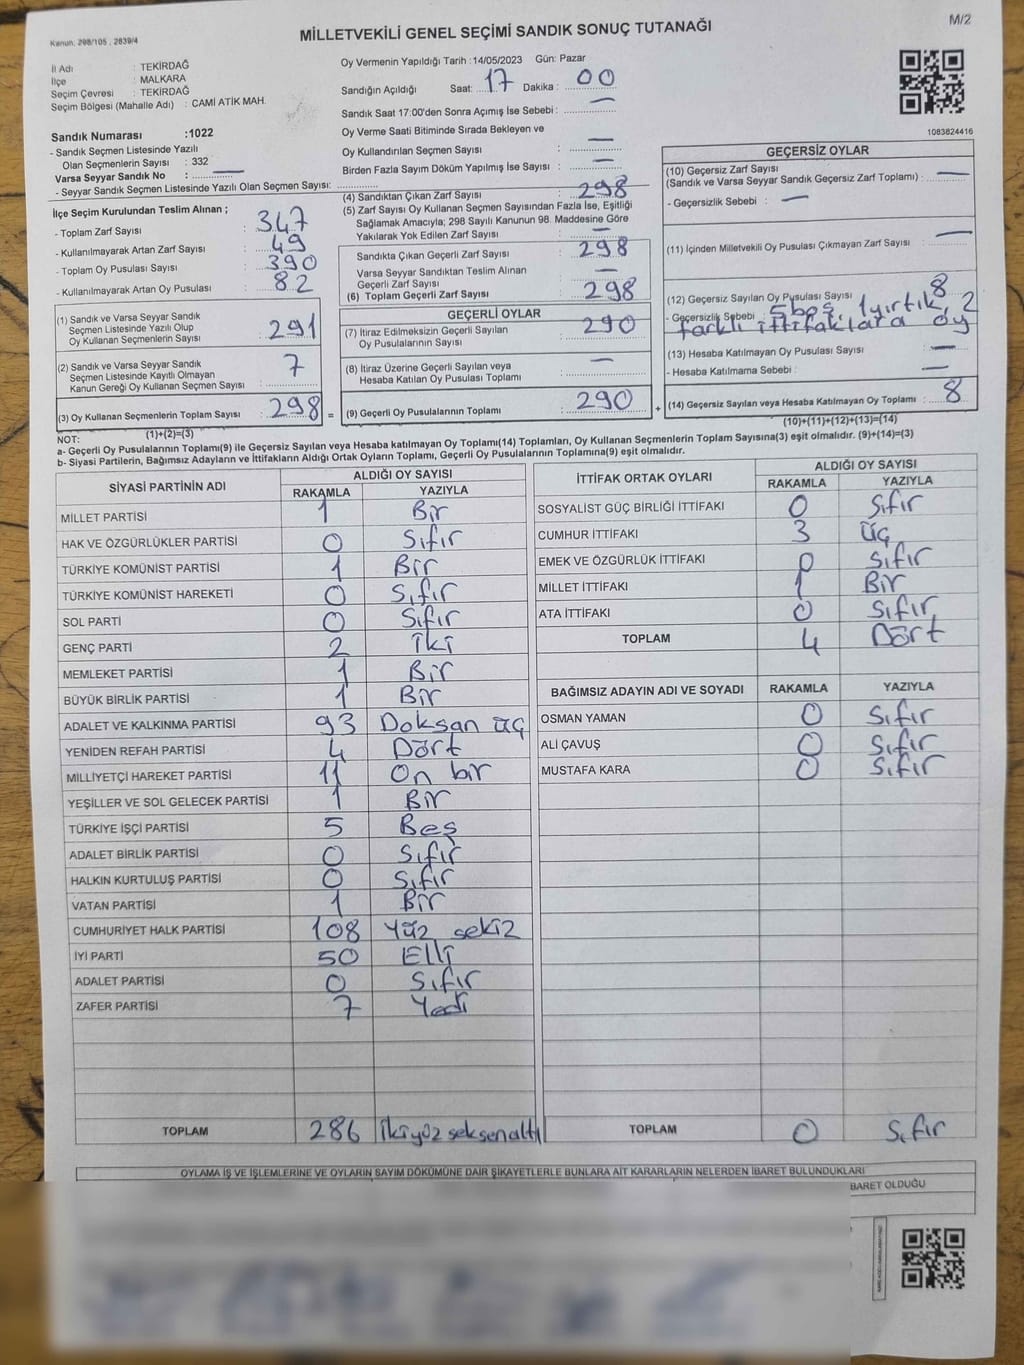 M/2
Kanun: 298/105 , 2839/4
MİLLETVEKİLİ GENEL SEÇİMİ SANDIK SONUÇ TUTANAĞI
İl Adı : TEKİRDAĞ
İlçe : MALKARA
Seçim Çevresi : TEKİRDAĞ
Seçim Bölgesi (Mahalle Adı) : CAMİ ATİK MAH.
Oy Vermenin Yapıldığı Tarih : 14/05/2023 Gün: Pazar
Sandığın Açıldığı Saat: 17 Dakika : 00
Sandık Saat 17:00'den Sonra Açımış İse Sebebi : —
Oy Verme Saati Bitiminde Sırada Bekleyen ve
Oy Kullandırılan Seçmen Sayısı : —
Birden Fazla Sayım Döküm Yapılmış İse Sayısı : —
1083824416
Sandık Numarası :1022
- Sandık Seçmen Listesinde Yazılı
Olan Seçmenlerin Sayısı : 332
Varsa Seyyar Sandık No : —
- Seyyar Sandık Seçmen Listesinde Yazılı Olan Seçmen Sayısı:
İlçe Seçim Kurulundan Teslim Alınan ;
- Toplam Zarf Sayısı : 347
- Kullanılmayarak Artan Zarf Sayısı : 49
- Toplam Oy Pusulası Sayısı : 390
- Kullanılmayarak Artan Oy Pusulası : 82
(1) Sandık ve Varsa Seyyar Sandık
Seçmen Listesinde Yazılı Olup
Oy Kullanan Seçmenlerin Sayısı : 291
(2) Sandık ve Varsa Seyyar Sandık
Seçmen Listesinde Kayıtlı Olmayan
Kanun Gereği Oy Kullanan Seçmen Sayısı : 7
(3) Oy Kullanan Seçmenlerin Toplam Sayısı : 298 =
(1)+(2)=(3)
(4) Sandıktan Çıkan Zarf Sayısı : 298
(5) Zarf Sayısı Oy Kullanan Seçmen Sayısından Fazla İse, Eşitliği
Sağlamak Amacıyla; 298 Sayılı Kanunun 98. Maddesine Göre
Yakılarak Yok Edilen Zarf Sayısı : —
Sandıkta Çıkan Geçerli Zarf Sayısı : 298
Varsa Seyyar Sandıktan Teslim Alınan
Geçerli Zarf Sayısı : —
(6) Toplam Geçerli Zarf Sayısı : 298
GEÇERLİ OYLAR
(7) İtiraz Edilmeksizin Geçerli Sayılan
Oy Pusulalarının Sayısı : 290
(8) İtiraz Üzerine Geçerli Sayılan veya
Hesaba Katılan Oy Pusulası Toplamı : —
(9) Geçerli Oy Pusulalarının Toplamı : 290 +
GEÇERSİZ OYLAR
(10) Geçersiz Zarf Sayısı
(Sandık ve Varsa Seyyar Sandık Geçersiz Zarf Toplamı) : —
- Geçersizlik Sebebi : —
(11) İçinden Milletvekili Oy Pusulası Çıkmayan Zarf Sayısı : —
(12) Geçersiz Sayılan Oy Pusulası Sayısı : 8
- Geçersizlik Sebebi : 5 boş, 1 yırtık, 2
farklı ittifaklara oy
(13) Hesaba Katılmayan Oy Pusulası Sayısı : —
- Hesaba Katılmama Sebebi : —
(14) Geçersiz Sayılan veya Hesaba Katılmayan Oy Toplamı : 8
(10)+(11)+(12)+(13)=(14)
NOT:
a- Geçerli Oy Pusulalarının Toplamı(9) ile Geçersiz Sayılan veya Hesaba katılmayan Oy Toplamı(14) Toplamları, Oy Kullanan Seçmenlerin Toplam Sayısına(3) eşit olmalıdır. (9)+(14)=(3)
b- Siyasi Partilerin, Bağımsız Adayların ve İttifakların Aldığı Ortak Oyların Toplamı, Geçerli Oy Pusulalarının Toplamına(9) eşit olmalıdır.
SİYASİ PARTİNİN ADI ALDIĞI OY SAYISI
RAKAMLA YAZIYLA
MİLLET PARTİSİ 1 Bir
HAK VE ÖZGÜRLÜKLER PARTİSİ 0 Sıfır
TÜRKİYE KOMÜNİST PARTİSİ 1 Bir
TÜRKİYE KOMÜNİST HAREKETİ 0 Sıfır
SOL PARTİ 0 Sıfır
GENÇ PARTİ 2 İki
MEMLEKET PARTİSİ 1 Bir
BÜYÜK BİRLİK PARTİSİ 1 Bir
ADALET VE KALKINMA PARTİSİ 93 Doksan üç
YENİDEN REFAH PARTİSİ 4 Dört
MİLLİYETÇİ HAREKET PARTİSİ 11 On bir
YEŞİLLER VE SOL GELECEK PARTİSİ 1 Bir
TÜRKİYE İŞÇİ PARTİSİ 5 Beş
ADALET BİRLİK PARTİSİ 0 Sıfır
HALKIN KURTULUŞ PARTİSİ 0 Sıfır
VATAN PARTİSİ 1 Bir
CUMHURİYET HALK PARTİSİ 108 Yüz sekiz
İYİ PARTİ 50 Elli
ADALET PARTİSİ 0 Sıfır
ZAFER PARTİSİ 7 Yedi
TOPLAM 286 İkiyüz seksenaltı
İTTİFAK ORTAK OYLARI ALDIĞI OY SAYISI
RAKAMLA YAZIYLA
SOSYALİST GÜÇ BİRLİĞİ İTTİFAKI 0 Sıfır
CUMHUR İTTİFAKI 3 Üç
EMEK VE ÖZGÜRLÜK İTTİFAKI 0 Sıfır
MİLLET İTTİFAKI 1 Bir
ATA İTTİFAKI 0 Sıfır
TOPLAM 4 Dört
BAĞIMSIZ ADAYIN ADI VE SOYADI RAKAMLA YAZIYLA
OSMAN YAMAN 0 Sıfır
ALİ ÇAVUŞ 0 Sıfır
MUSTAFA KARA 0 Sıfır
TOPLAM 0 Sıfır
OYLAMA İŞ VE İŞLEMLERİNE VE OYLARIN SAYIM DÖKÜMÜNE DAİR ŞİKAYETLERLE BUNLARA AİT KARARLARIN NELERDEN İBARET BULUNDUKLARI
BARET OLDUĞU